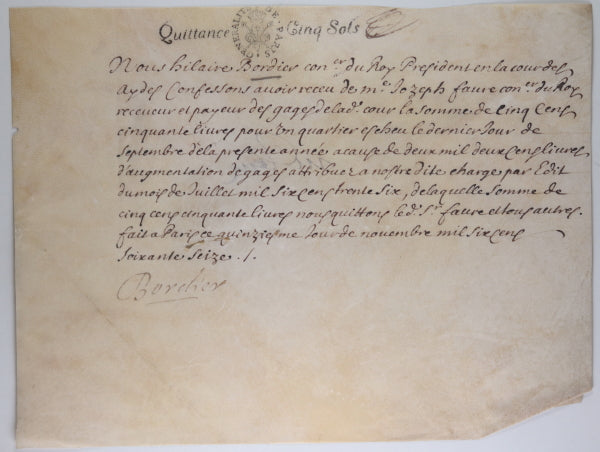 Quittance Cinq Sols
GENERALITE DE PARIS
Nous hilaire Bordier con.er du Roy President en la cour des
Aydes Confessons avoir receu de m.e Joseph faure con.er du Roy
receveur et payeur des gages de lad. cour la somme de Cinq Cens
cinquante livres pour un quartier escheu le dernier Jour de
Septembre de la presente année a cause de deux mil deux cens livres
d'augmentation de gages attribuez a nostre dite charge par Edit
du mois de Juillet mil six cens trente six, de laquelle somme de
cinq cens cinquante livres nous quittons led. Sr. faure et tous autres.
fait a Paris ce quinziesme Jour de novembre mil six cens
Soixante Seize ./.
Bordier